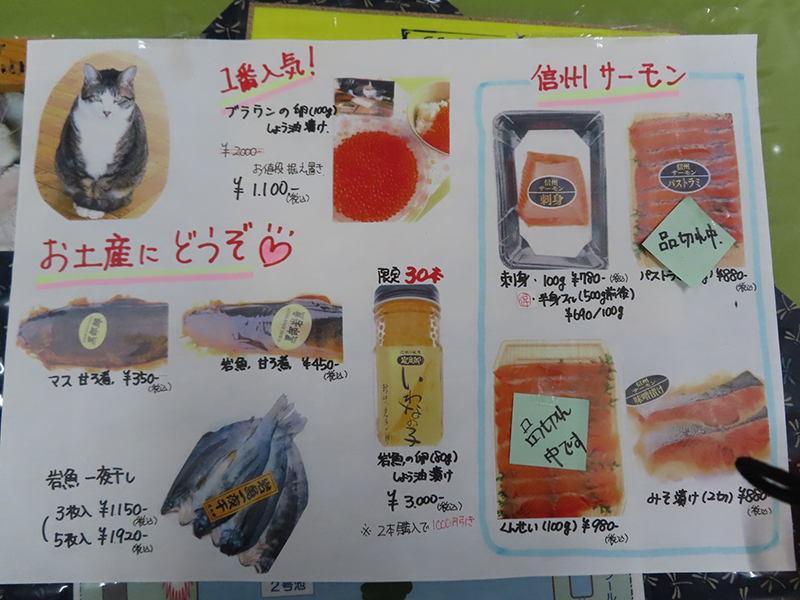 1番人気!
ブラウンの卵(100g)
しょう油漬け
¥2000-
お値段据え置き
¥1.100-(税込)
お土産に どうぞ
マス 甘ろ煮 ¥350-(税込)
岩魚 甘ろ煮 ¥450-(税込)
岩魚 一夜干し
3枚入 ¥1150-(税込)
5枚入 ¥1920-(税込)
岩魚一夜干
限定 30本
いわなの子
岩魚の卵(80g)
しょう油漬け
¥3,000-(税込)
※ 2本購入で1000円引き
信州サーモン
信州
サーモン
刺身
刺身・100g ¥780-(税込)
半身フィレ(500g前後)
¥690/100g
信州
サーモン
パストラミ
品切れ中.
パストラ g) ¥880-(税込)
品切れ
中です
くんせい(100g) ¥980-(税込)
信州
サーモン
味噌漬け
みそ漬け(2切) ¥880-(税込)
2号池